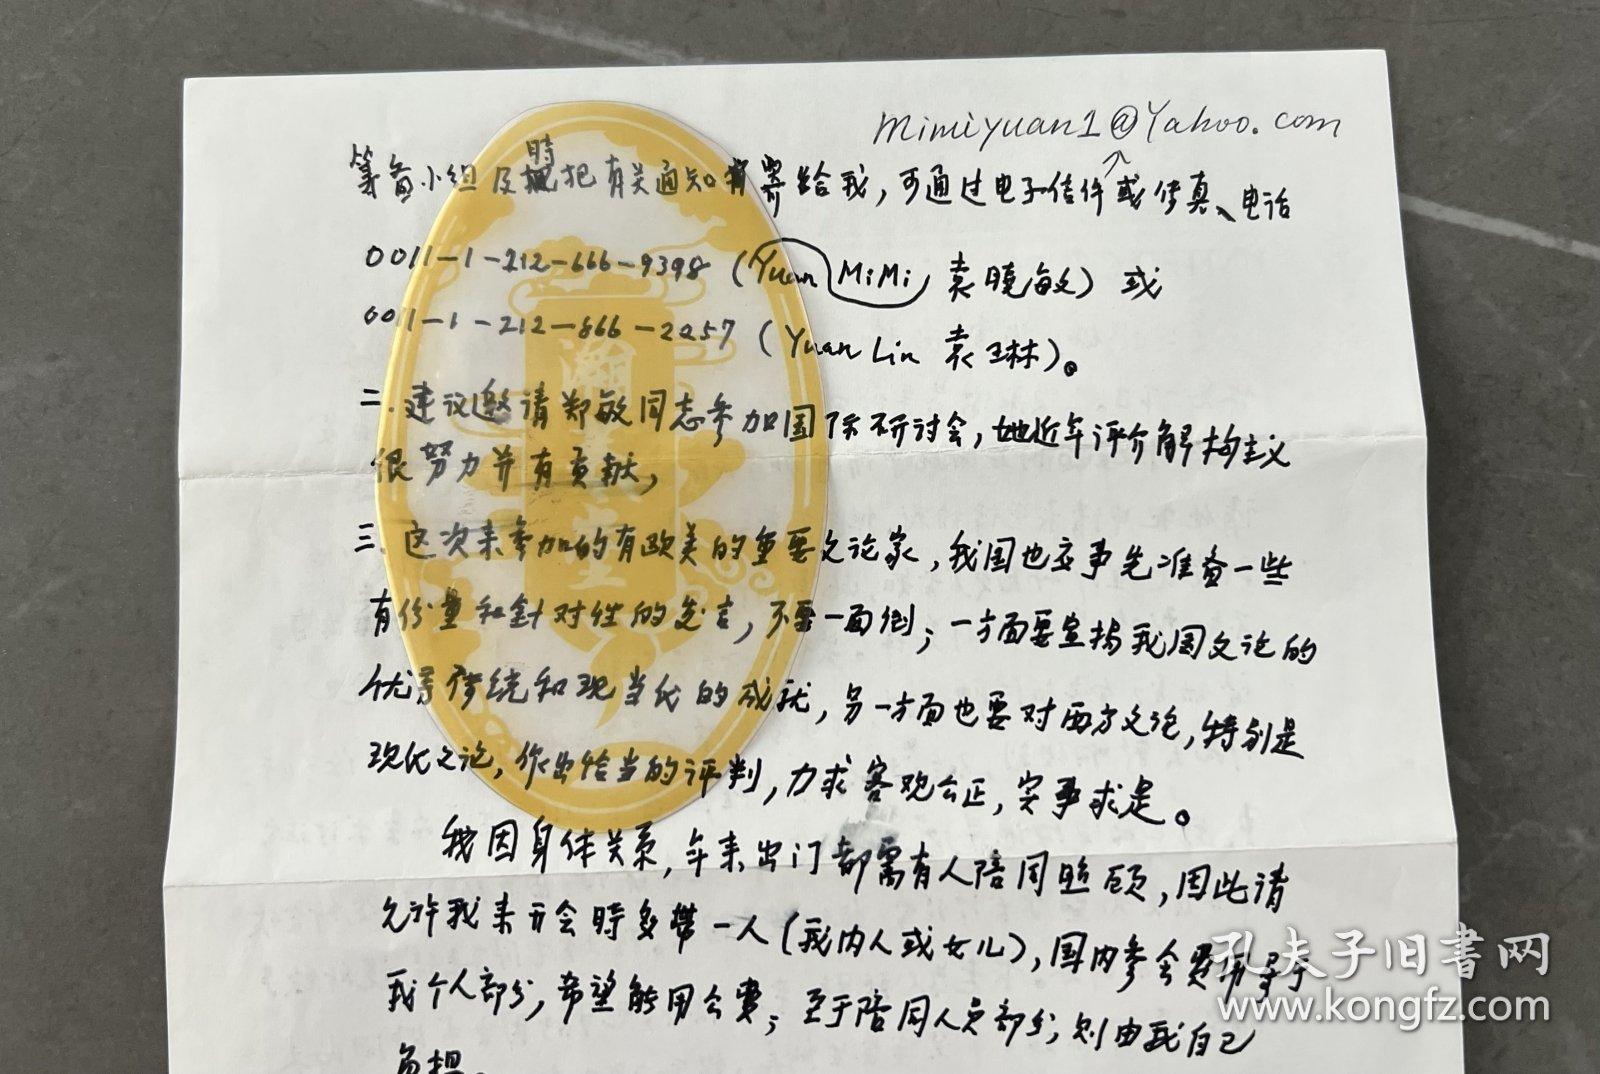 mimiyuan1@Yahoo.com
筹备小组及時把有关通知寄给我，可通过电子信件或传真、电话
0011-1-212-666-9398（Yuan MiMi 袁曉敏）或
0011-1-212-866-2257（Yuan Lin 袁琳）。
二.建议邀请郑敏同志参加国际研讨会，她近年评介解构主义
很努力并有贡献，
三.这次来参加的有欧美的重要文论家，我国也应事先准备一些
有份量和针对性的发言，不要一面倒；一方面要宣扬我国文论的
优秀传统和现当代的成就，另一方面也要对西方文论，特别是
现代文论，作出恰当的评判，力求客观公正，实事求是。
我因身体关系，年来出门都需有人陪同照顾，因此请
允许我来开会時多带一人（我内人或女儿），国内参会费用等于
我个人部分，希望能用公费；至于陪同人员部分，则由我自己
负担。
瀚
堂
孔夫子旧書网
www.kongfz.com